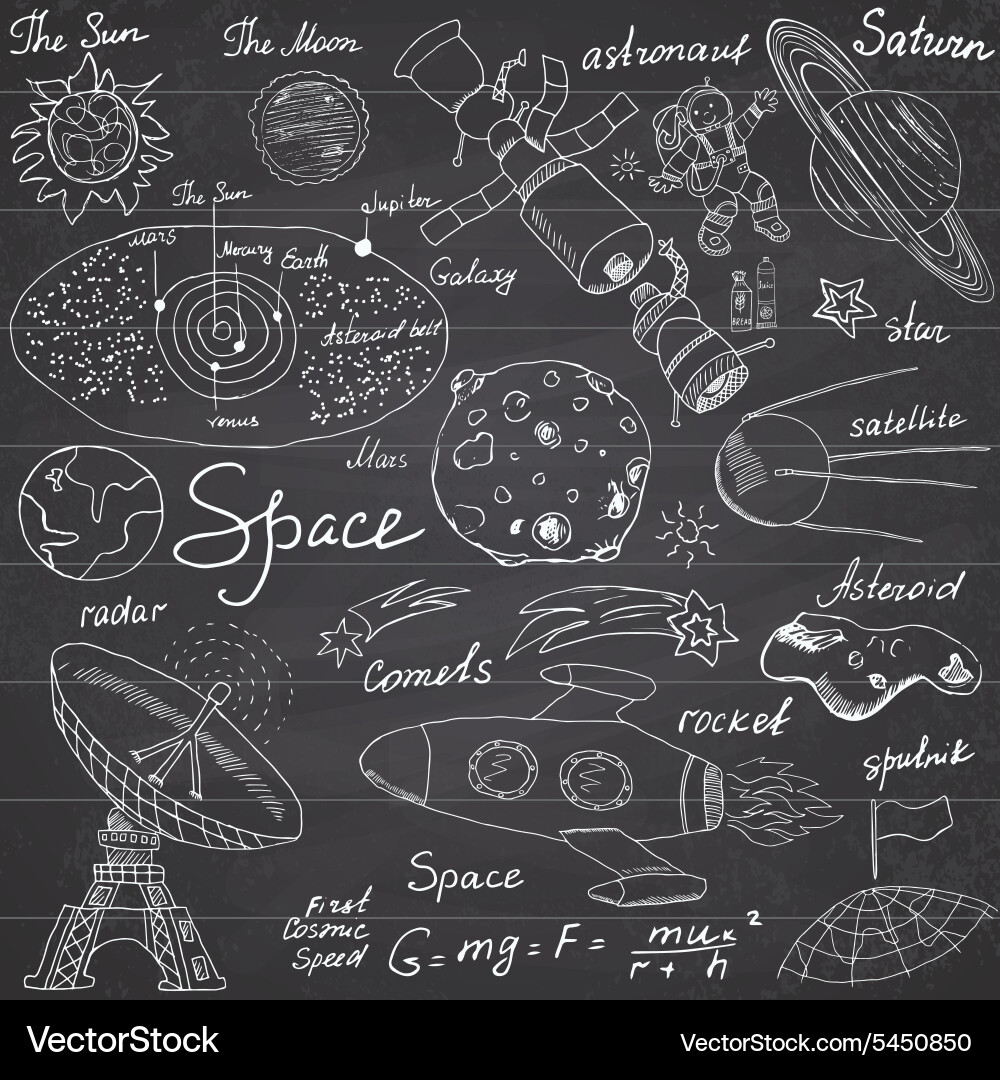 The Sun
The Moon
astronaut
Saturn
The Sun
Jupiter
Mars
Mercury
Earth
Galaxy
Asteroid belt
BREAD
Juice
star
venus
satellite
Mars
Space
Asteroid
radar
Comets
rocket
sputnik
Space
First
Cosmic
Speed
G = mg = F = muк²
r + h
VectorStock
VectorStock.com/5450850